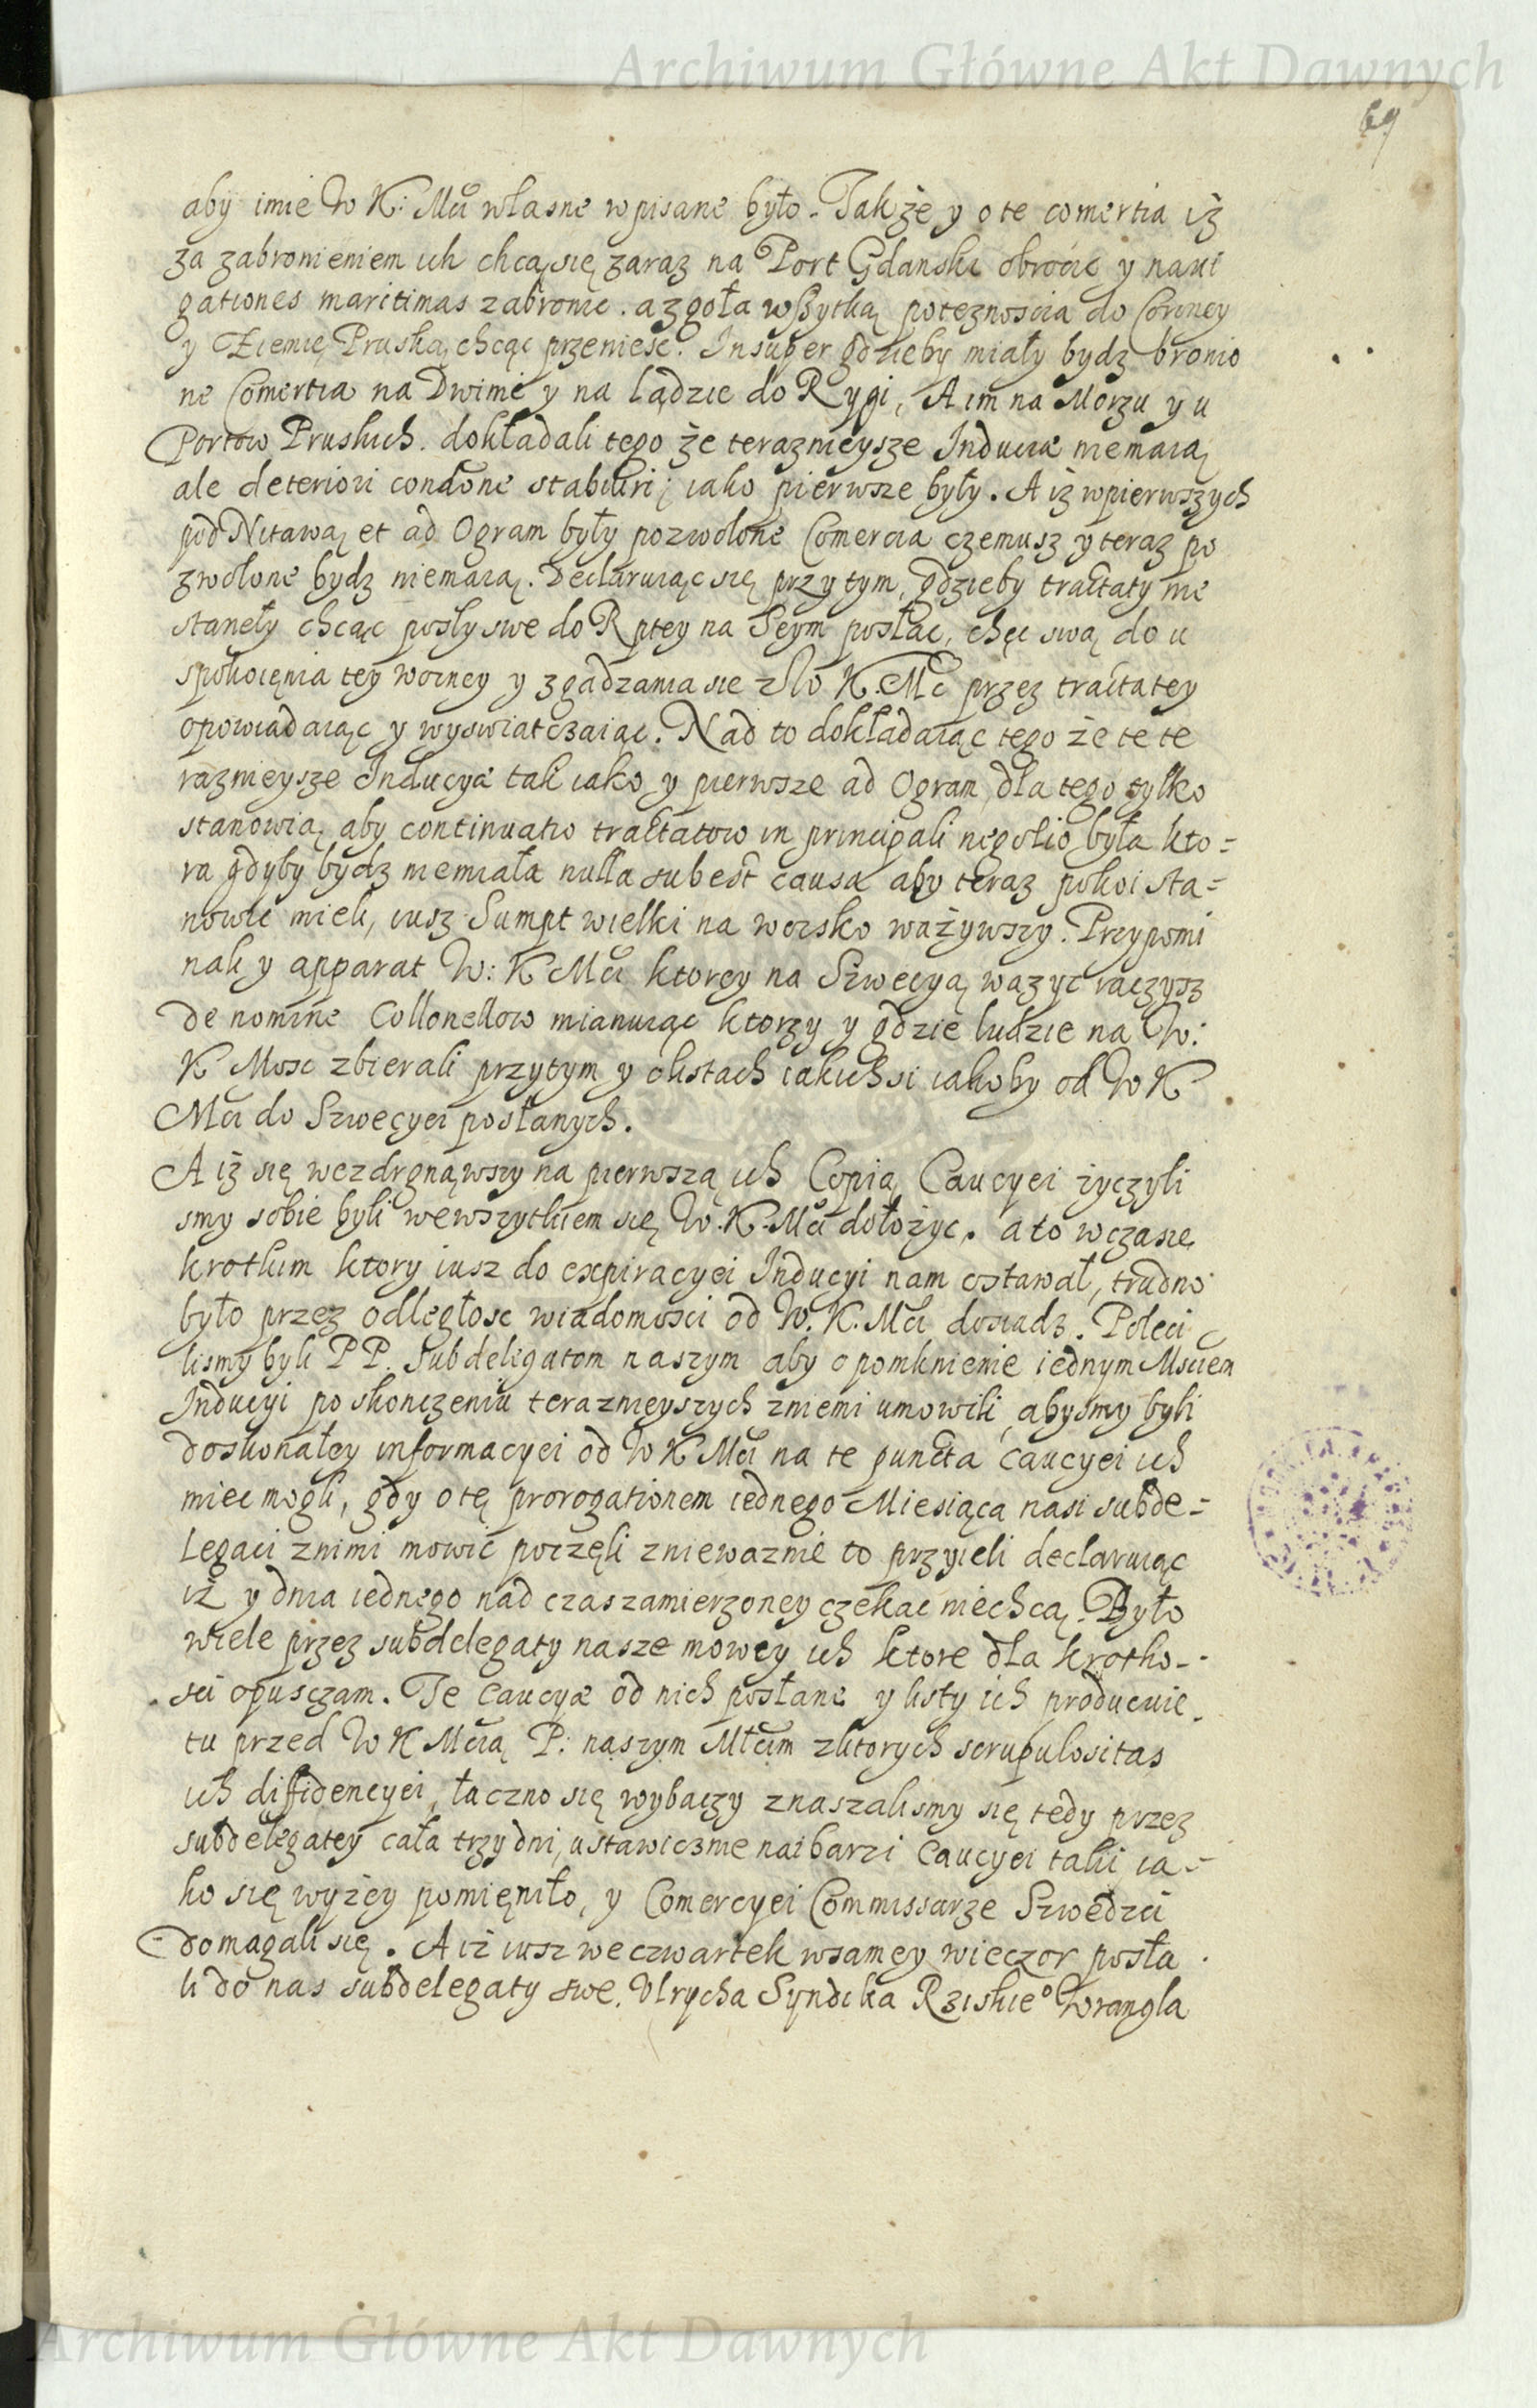 Archiwum Główne Akt Dawnych
69
aby imie W K: Mći własne wpisane było. Takze y o te comertia iż
za zabronieniem ich chcą się zaraz na Port Gdanski obrocic y navi
gationes maritimas zabronic. a zgoła wszytką poteznoscia do Coronney
y Ziemię Pruską chcąc przeniesc. Insuper gdzieby miały bydz bronio
ne Comertia na Dwinie y na lądzie do Rygi, A im na Morzu y u
Portow Pruskich. dokładali tego że terazmeysze Induciæ niemaią
ale deteriori conditione stabiliri, iako pierwsze były. A iż w pierwszych
pod Nitawą et ad Ogram były pozwolone Comercia czemusz y teraz po
zwolone bydz niemaią. Declaruiąc się przy tym, gdzieby tractaty nie
staneły chcąc posły swe do Rptey na Seym posłac, chęc swą do u
spokoięnia tey woiney y zgadzania sie z W K. Mc przez tractatey
opowiadaiąc y wyswiatczaiąc. Nad to dokładaiąc tego że te te
raznieysze Inducyæ tak iako y pierwsze ad Ogram, dla tego tylko
stanowią, aby continuatio tractatow in principali negotio była kto-
ra gdyby bydz niemiała nulla subest causa aby teraz pokoi sta-
nowic mieli, iusz Sumpt wielki na woisko ważywszy. Przypomi
nali y apparat W: K Mći ktorey na Szwecyą wazyc raczysz
de nomine Collonellow mianuiąc ktorzy y gdzie ludzie na W:
K Mosc zbierali przytym y o listach iakichsi iakoby od W K
Mći do Szwecyei posłanych.
A iż się wezdrgnąwszy na pierwszą ich Copią Caucyei życzyli
smy sobie byli wewszytkiem się W. K. Mći dołożyc. a to w czasie
krotkim ktory iusz do expiracyei Inducyi nam ostawał, trudno
było przez odległosc wiadomosci od W. K. Mći dosiadz. Poleci
lismy byli PP. Subdelegatom naszym aby o pomknienie iednym Msciem
Inducyi po skonczeniu teraznieyszych zniemi umowili, abysmy byli
doskonałey informacyei od W K Mći na te puncta caucyei ich
miec mogli, gdy o tę prorogationem iednego Miesiąca nasi subde-
legaci znimi mowić poczęli znieważnie to przyieli declaruiąc
iż y dnia iednego nad czas zamierzoney czekac niechcą. Było
wiele przez subdelegaty nasze mowey ich ktore dla krotko-
sci opusczam. Te caucyæ od nich posłane y listy ich producuie
tu przed W K Mcią P: naszym Młcim z ktorych scrupulositas
ich diffidencyei, łaczno się wybaczy znaszalismy się tedy przez
subdelegatey cała trzy dni, ustawicznie naibarzi Caucyei taki ia-
ko się wyżey pomięniło, y Comercyei Commissarze Szwedzci
domagali się. A iż iusz we czwartek w samey wieczor posła
li do nas subdelegaty swe. Ulrycha Syndika Rziskieo Wrangla
Archiwum Główne Akt Dawnych